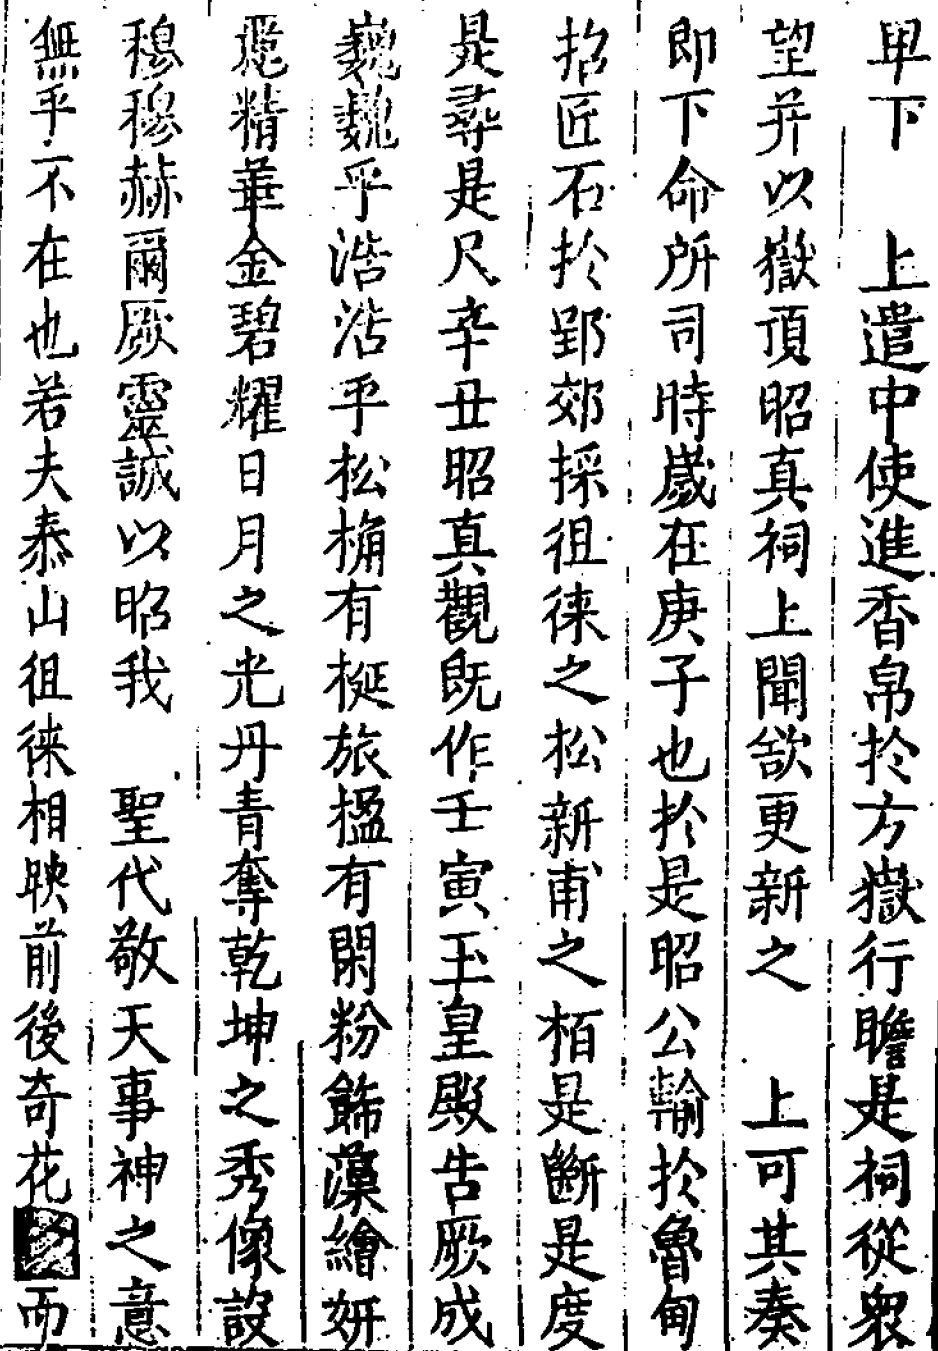 卑下　上遣中使進香帛於方嶽行瞻是祠從衆
望并以嶽頂昭真祠上聞欲更新之　上可其奏
即下命所司時歲在庚子也於是昭公輸於魯甸
招匠石於郢郊採徂徠之松新甫之栢是斷是度
是尋是尺辛丑昭真觀既作壬寅玉皇殿告厥成
巍巍乎浩浩乎松桷有梴旅楹有閑粉餙藻繪妍
精華金碧耀日月之光丹青奪乾坤之秀像設
穆穆赫爾厥靈誠以昭我　聖代敬天事神之意
無乎不在也若夫泰山徂徠相映前後奇花而